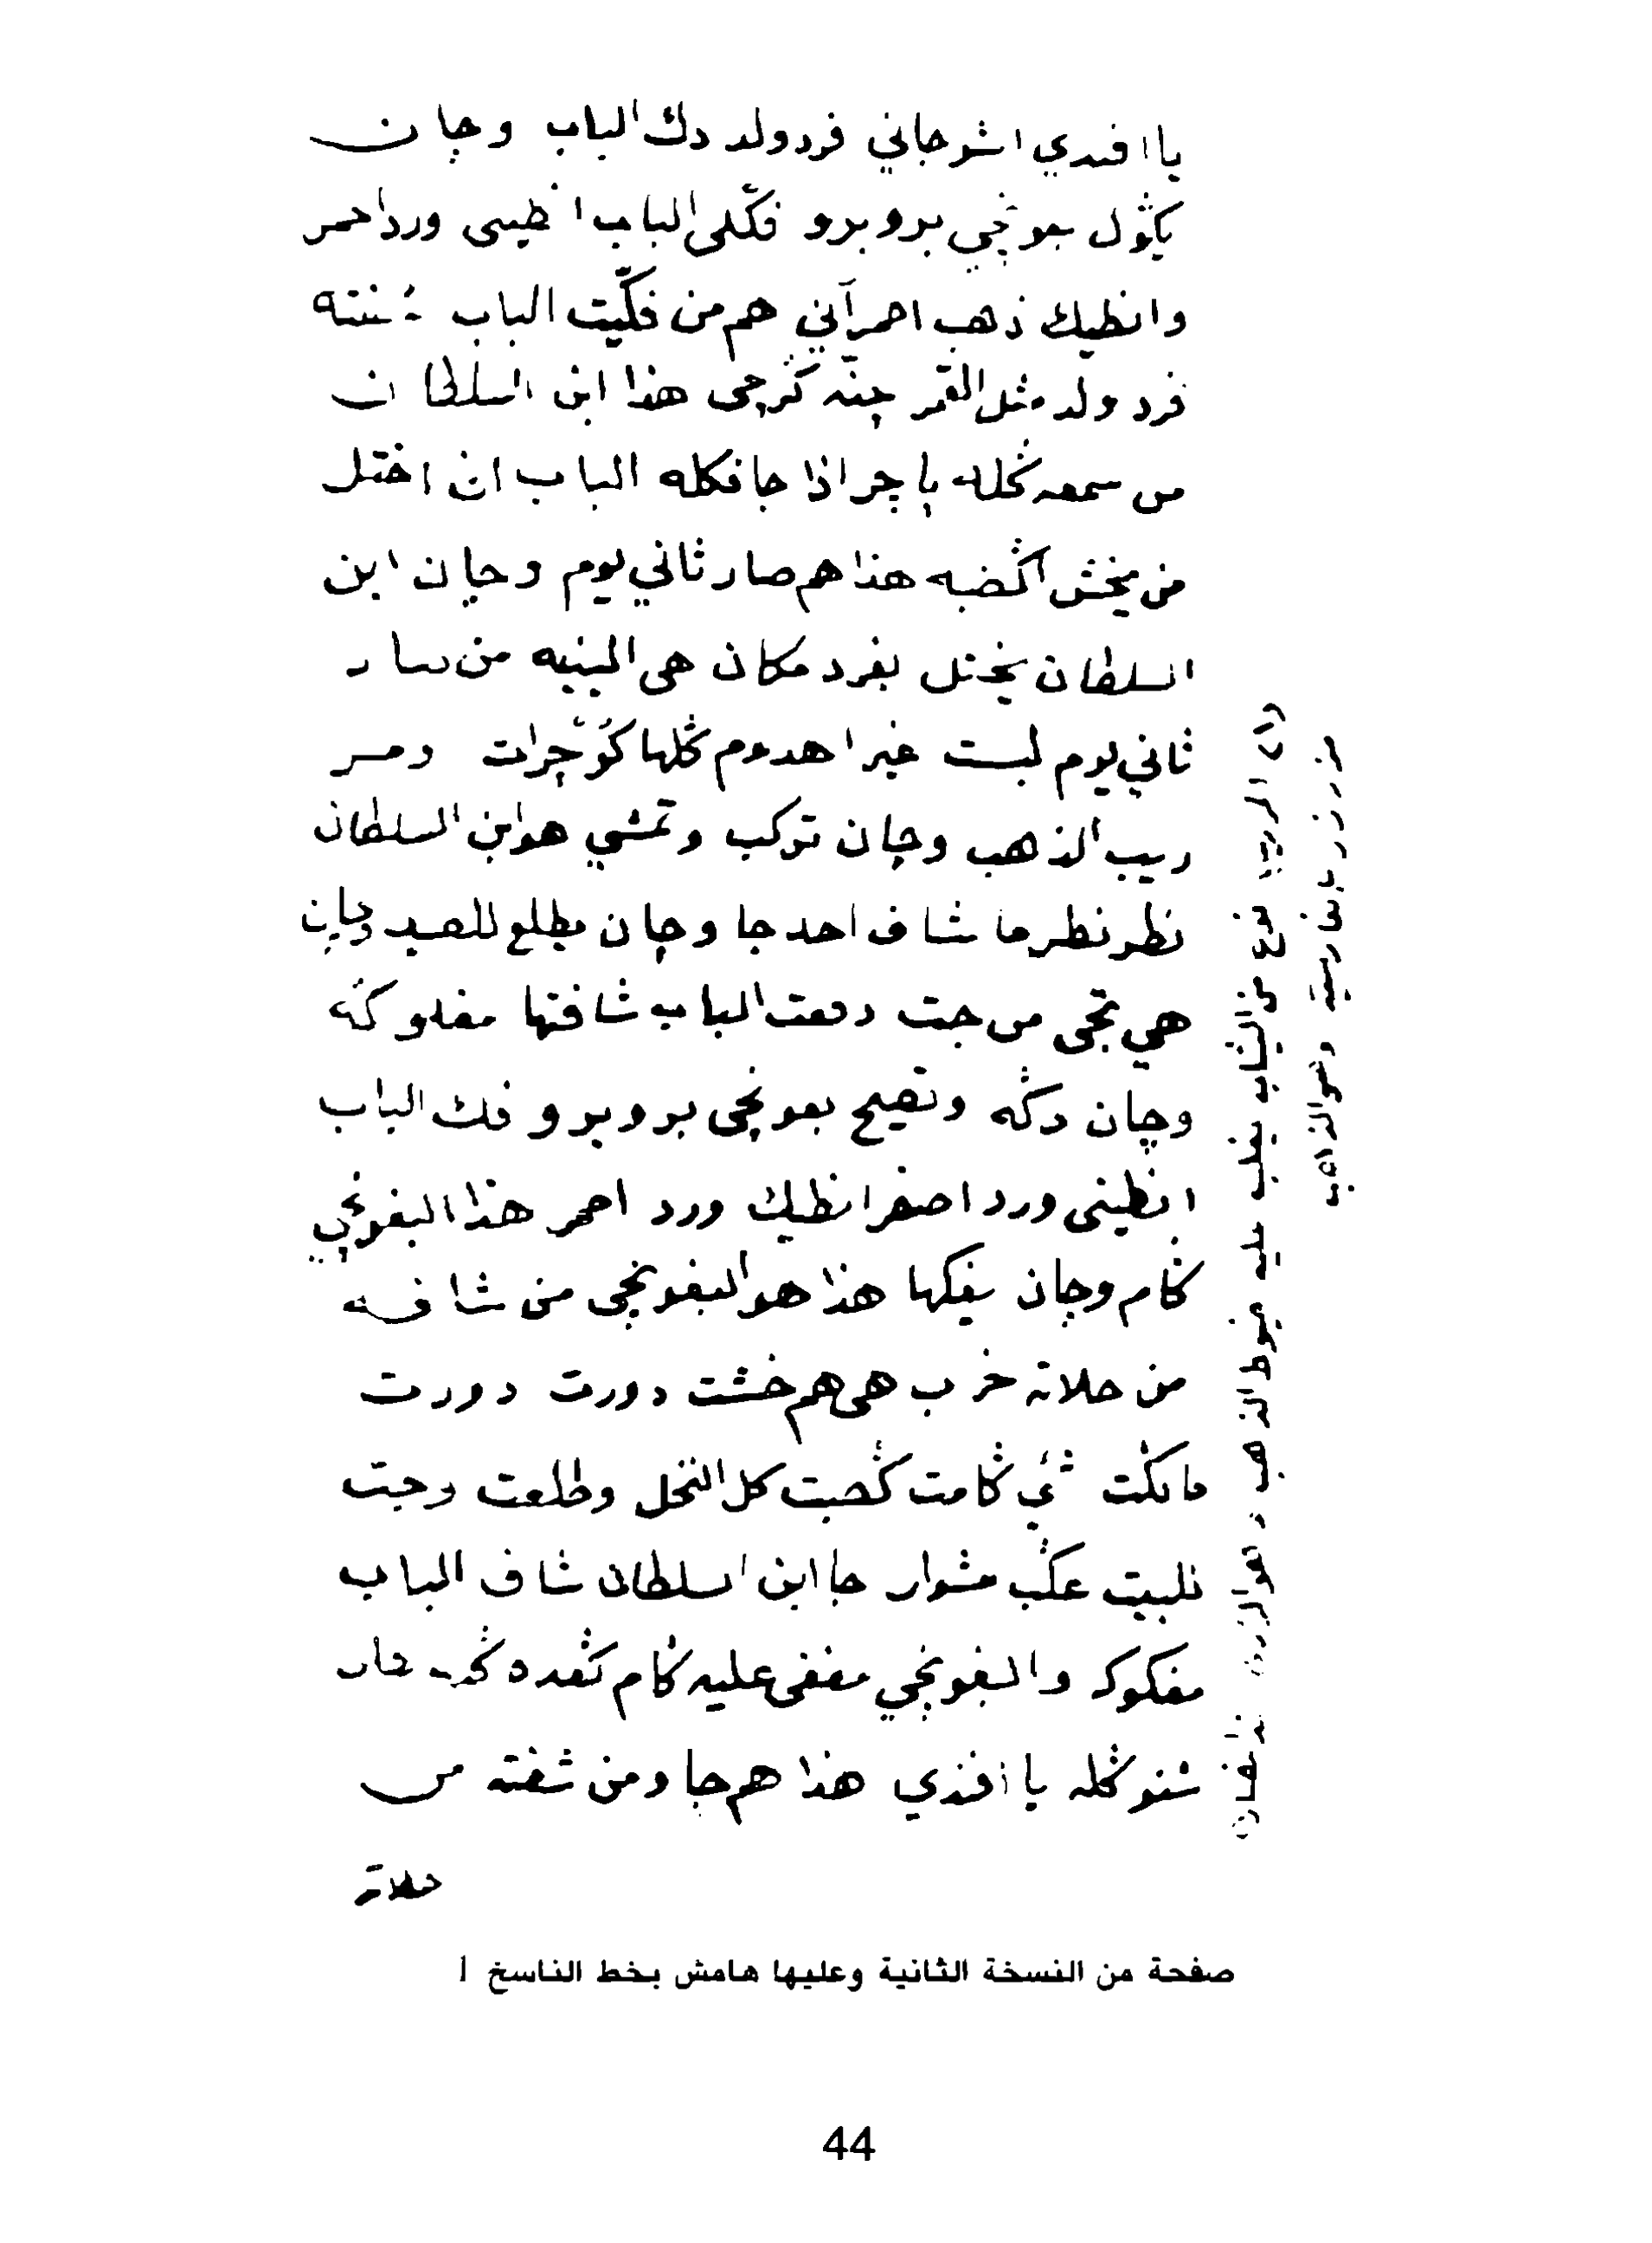 يا افندي اشو جاني فرد ولد دك الباب وچان
يگول بغونچي برو برو فكّلي الباب انطيني ورد احمر
وانطيك ذهب احمر آني هم من فكّيت الباب شفته
فرد ولد مثل القمر چنّه گرجي هذا ابن السلطان
من سمعه گله باچر اذا جا فكله الباب ان اختل
من يخش الگضبه هذا هم صار ثاني يوم وچان ابن
السلطان يختل بفرد مكان هي البنيه من صار
ثاني يوم لبست غير اهدوم كلها گوجرات ومر
ريب الذهب وچان تركب وتمشي هو ابن السلطان
نظر نظر ما شاف احد جا وچان يطلع للصيد وچان
هي تجي من جت دفعت الباب شافتها مغلوگه
وچان دگه وتصيح بغونچي برو برو فك الباب
انطيني ورد اصفر انطيك ورد احمر هذا البغونچي
گام وچان يفكها هذا هو البغونچي من شافه
من حلاته خرب هي هم خشت دورت دورت
ما لگت شي گامت گصت كل النخل وطلعت وجت
للبيت عگب مشوار جا ابن السلطان شاف الباب
مفكوك والبغونچي مغمى عليه گام گعده گله
شنو گله يا افندي هذا هم جا ومن شفته من
حلاته
نوع من الثياب يغلب عليه خيوط الذهب
بالفارسية وهو الذهب
صفحة من النسخة الثانية وعليها هامش بخط الناسخ أ
44